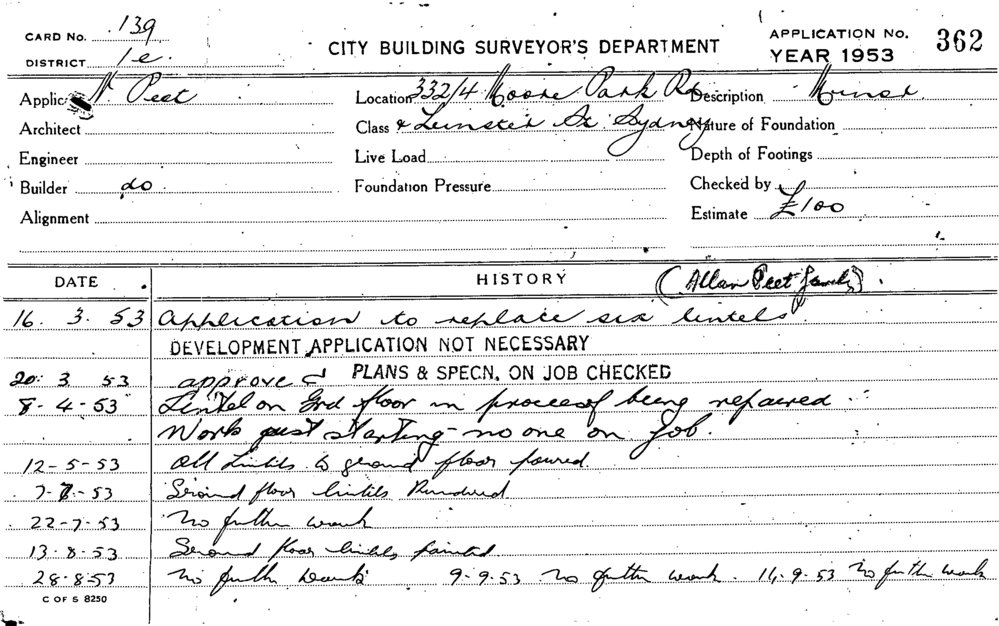 CARD No. 139
DISTRICT 1e.
CITY BUILDING SURVEYOR'S DEPARTMENT
APPLICATION No. 362
YEAR 1953
Applic Peet
Location 332/4 Moore Park Rd
Description Minor
Architect
Class & Leinster St. Sydney
Nature of Foundation
Engineer
Live Load
Depth of Footings
Builder do
Foundation Pressure
Checked by
Alignment
Estimate £100
DATE
HISTORY
(Allan Peet
16. 3. 53 Application to replace six lintels
DEVELOPMENT APPLICATION NOT NECESSARY
20. 3 53 approved PLANS & SPECN. ON JOB CHECKED
8-4-53 Lintel on Grd floor in process of being repaired
Work just starting - no one on job.
12-5-53 All Lintels to ground floor poured.
7-7-53 Second floor lintels
22-7-53 No further work
13-8-53 Second floor lintels painted
28-8-53 No further work 9-9-53 No further work. 14-9-53 No further work
C OF S 8250